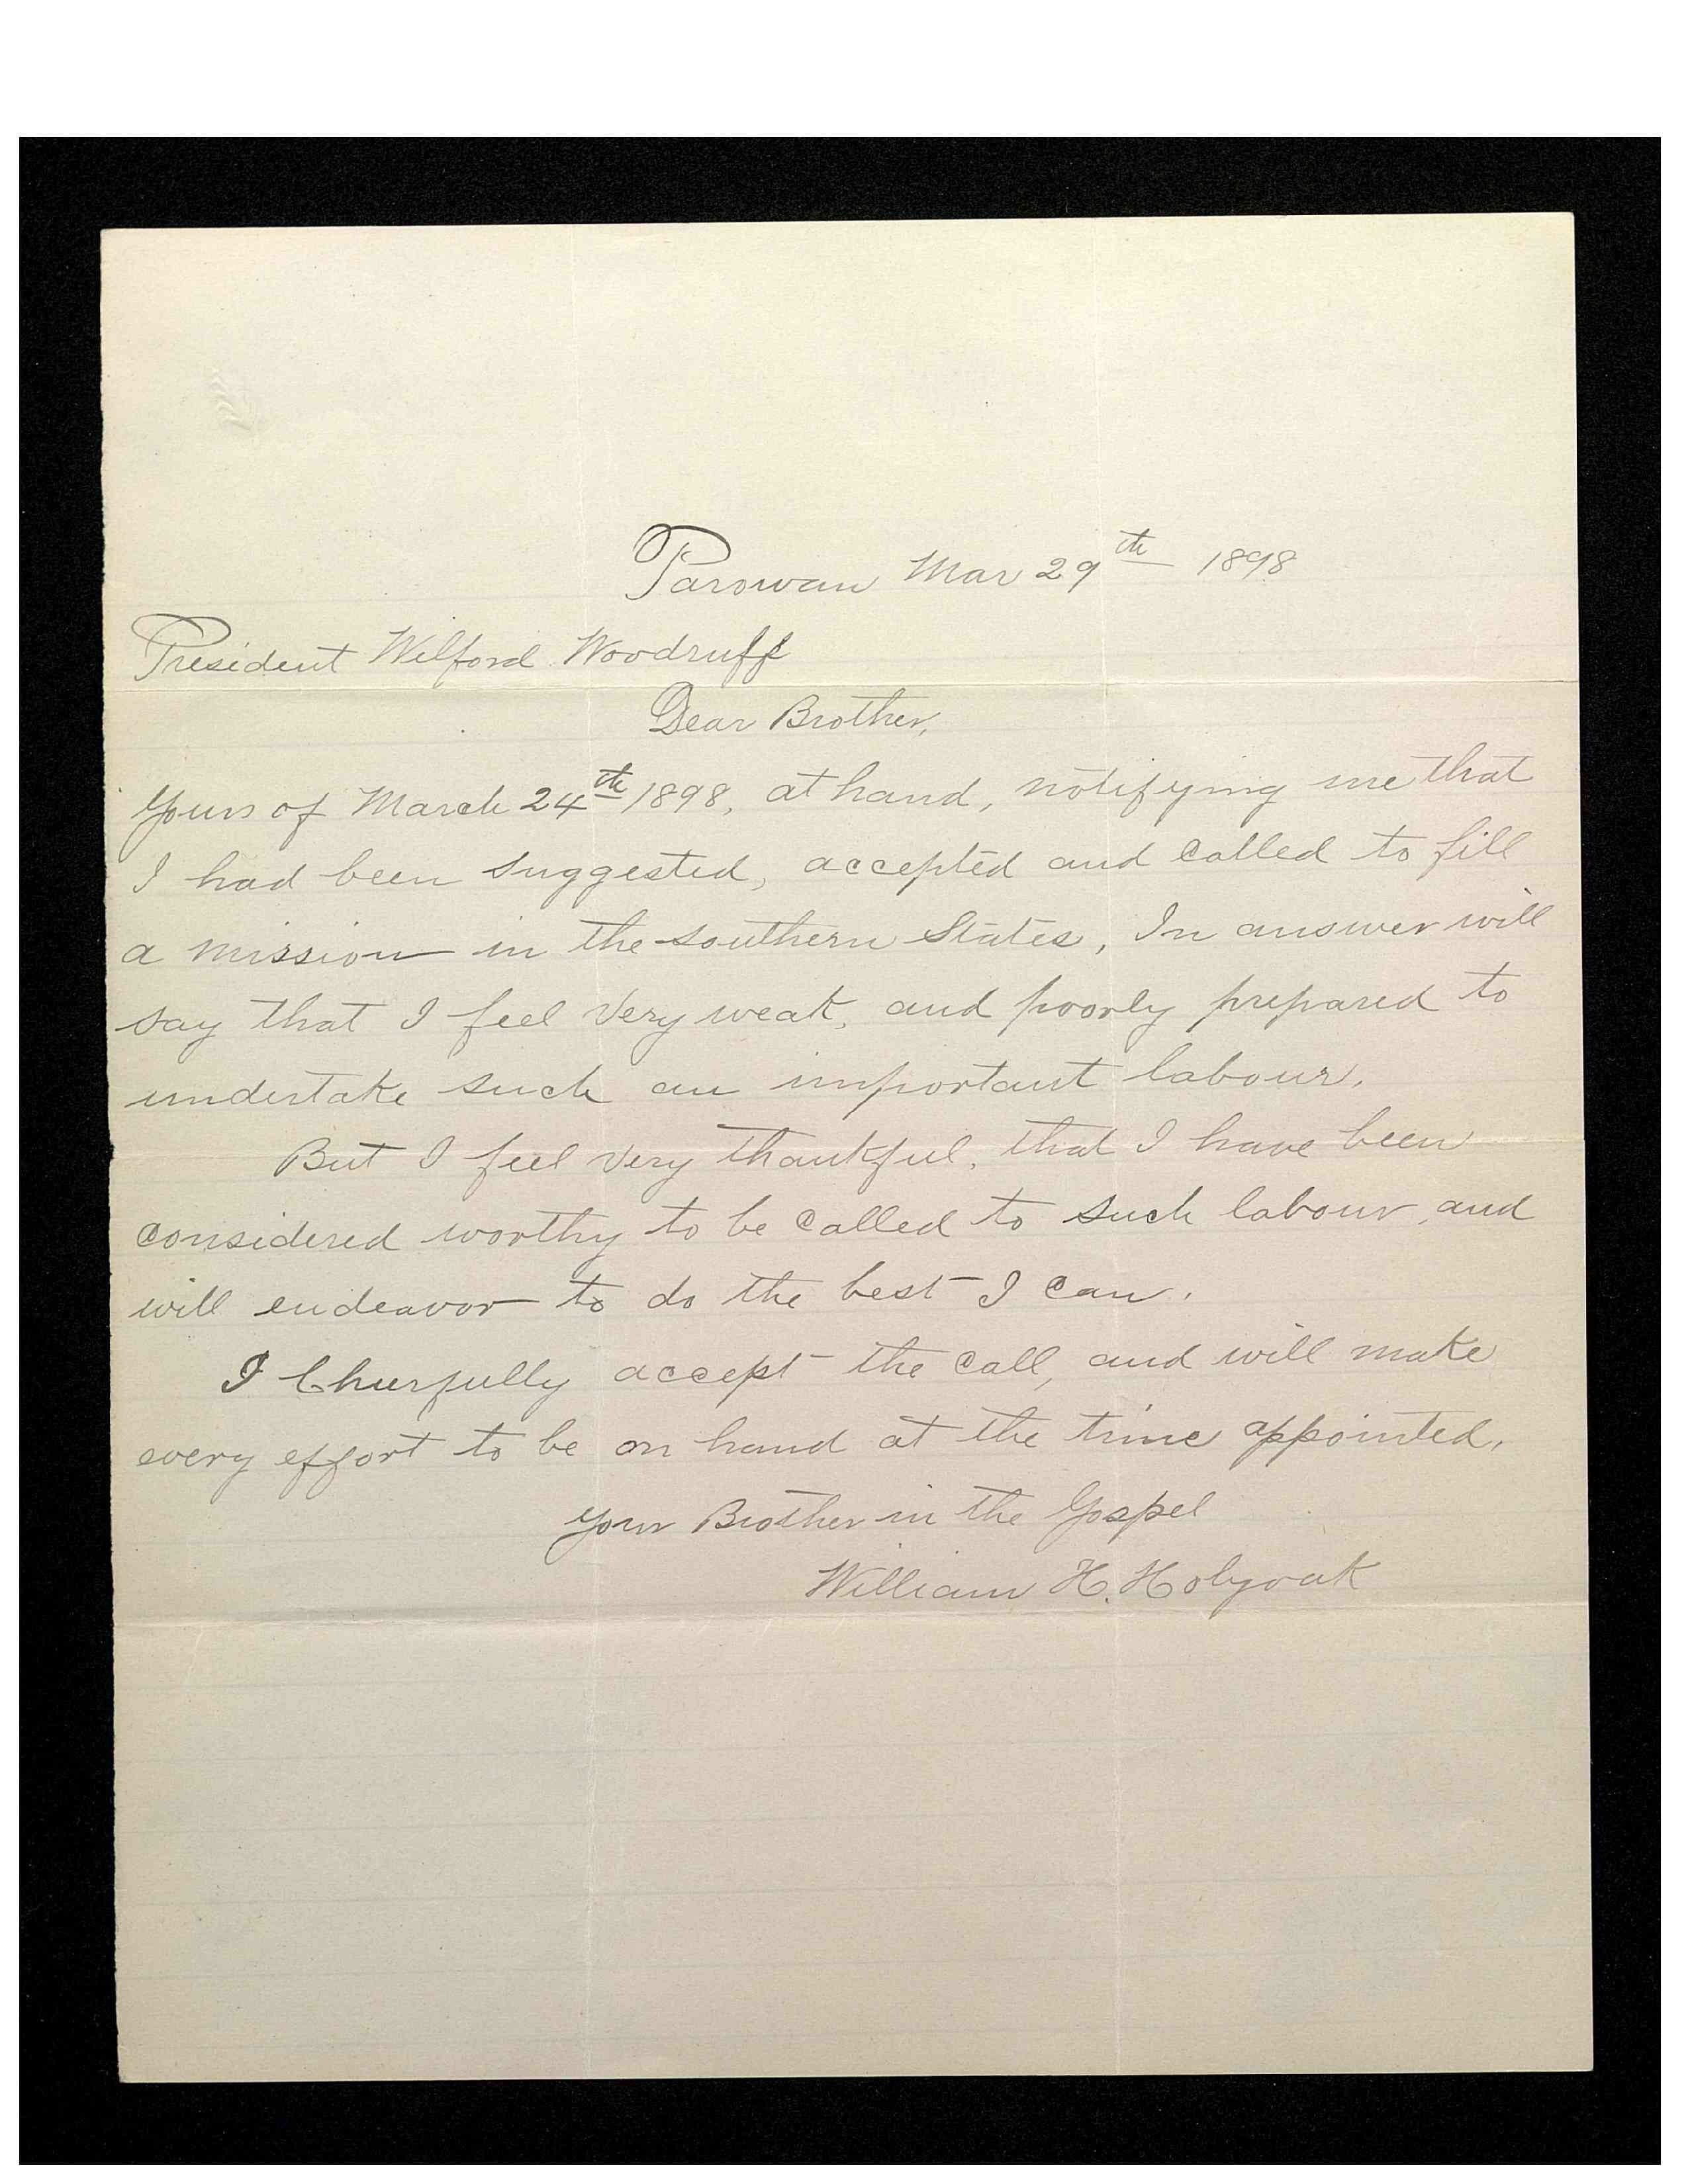 Parowan Mar 29th 1898
President Wilford Woodruff
Dear Brother,
Yours of March 24th 1898, at hand, notifying me that
I had been suggested, accepted and called to fill
a mission in the southern States, In answer will
say that I feel very weak, and poorly prepared to
undertake such an important labour.
But I feel very thankful, that I have been
considered worthy to be called to such labour, and
will endeavor to do the best I can.
I Cheerfully accept the call, and will make
every effort to be on hand at the time appointed,
your Brother in the Gospel
William H. Holyoak